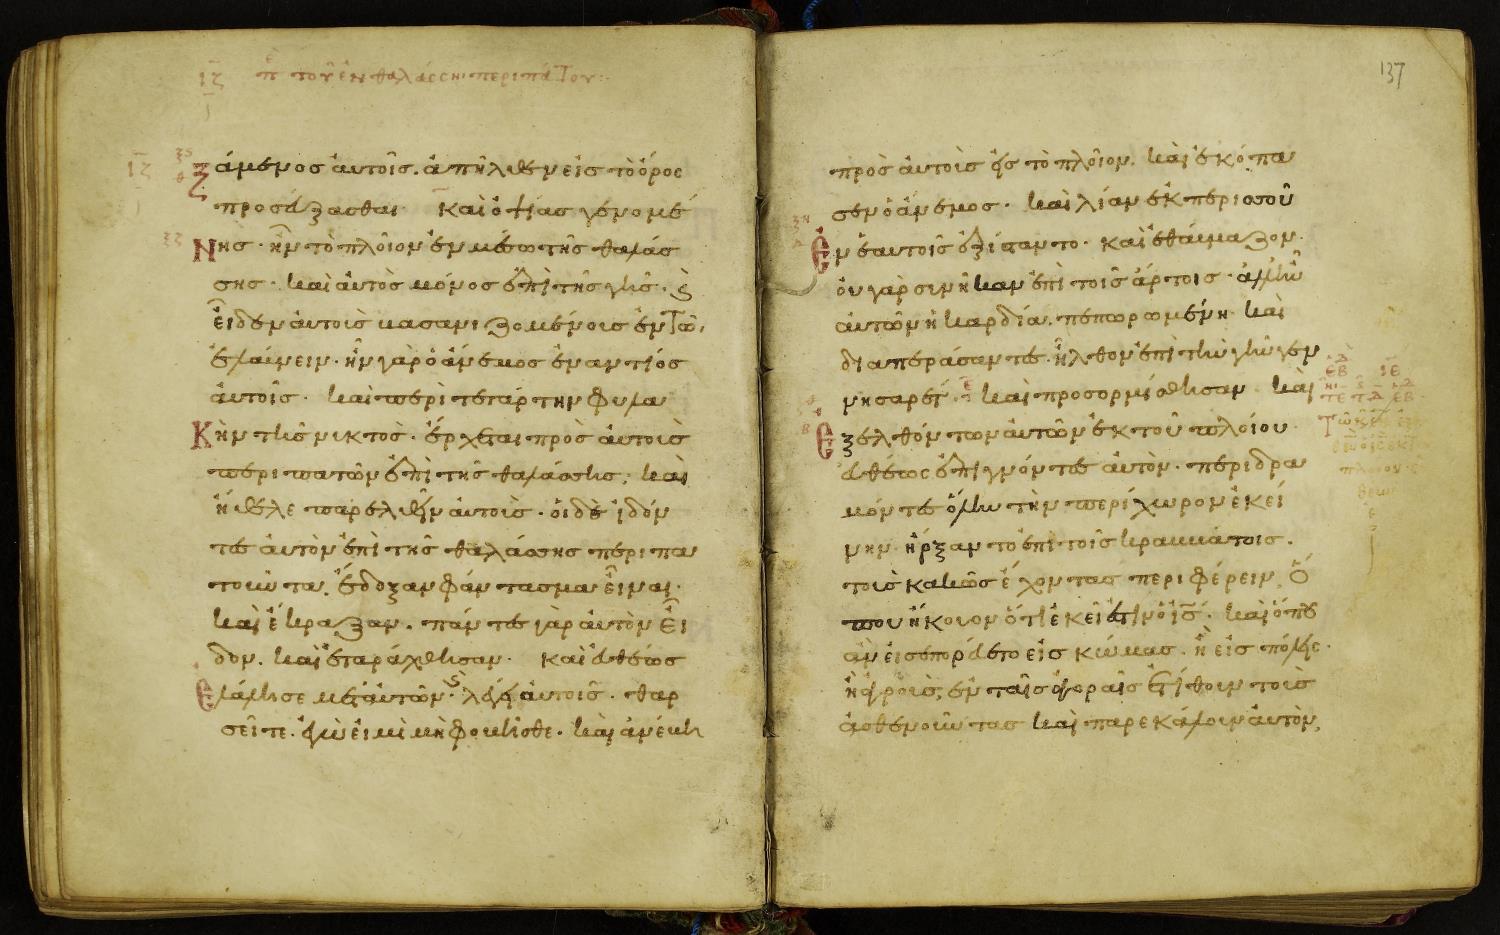 ιζ πε τοῦ ἐν θαλάσση περιπάτου
ξάμενος αὐτοῖς. ἀπῆλθεν εἰς τὸ ὄρος
προσεύξασθαι καὶ ὀψίας γενομέ
νης· ἦν τὸ πλοῖον ἐν μέσω τῆς θαλάσ
σης· καὶ αὐτὸς μόνος ἐπὶ τῆς γῆς. καὶ
εἶδεν αὐτοὺς βασανιζομένους ἐν τῶ
ἐλαύνειν· ἦν γὰρ ὁ ἄνεμος ἐναντίος
αὐτοῖς· καὶ περὶ τετάρτην φυλα
κὴν τῆς νυκτὸς· ἔρχεται πρὸς αὐτοὺς
περιπατῶν ἐπὶ τῆς θαλάσσης· καὶ
ἤθελε παρελθεῖν αὐτοὺς· οἱ δὲ ἰδόν
τες αὐτὸν ἐπὶ τῆς θαλάσσης περιπα
τοῦντα. ἔδοξαν φάντασμα εἶναι·
καὶ ἔκραξαν. πάντες γὰρ αὐτὸν εἶ
δον. καὶ ἐταράχθησαν· καὶ εὐθέως
ἐλάλησε μετ αὐτῶν· καὶ λέγει αὐτοῖς· θαρ
σεῖτε· ἐγὼ εἰμὶ μὴ φοβῆσθε· καὶ ἀνέβη
137
πρὸς αὐτοὺς εἰς τὸ πλοῖον. καὶ ἐκόπα
σεν ὁ ἄνεμος· καὶ λίαν ἐκ περισσοῦ
ἐν ἑαυτοῖς ἐξίσταντο· καὶ ἐθαύμαζον·
οὐ γὰρ συνῆκαν ἐπὶ τοῖς ἄρτοις· ἀλλ ἦν
αὐτῶν ἡ καρδία. πεπωρωμένη· καὶ
διαπεράσαντες· ἦλθον ἐπὶ τὴν γῆν γεν
νησαρέτ· καὶ προσορμίσθησαν· καὶ
ἐξελθόντων αὐτῶν ἐκ τοῦ πλοίου·
εὐθέως ἐπιγνόντες αὐτὸν· περιδρα
μόντες ὅλην τὴν περίχωρον ἐκεί
νην· ἤρξαντο ἐπὶ τοῖς κραββάτοις.
τοὺς κακῶς ἔχοντας περιφέρειν. ὅ
που ἤκουον ὅτι ἐκεῖ ἐστὶν ὁ ις· καὶ ὅπου
ἂν εἰσεπορεύετο εἰς κώμας. ἢ εἰς πόλεις·
ἢ ἀγροὺς, ἐν ταῖς ἀγοραῖς ἐτίθουν τοὺς
ἀσθενοῦντας καὶ παρεκάλουν αὐτὸν,